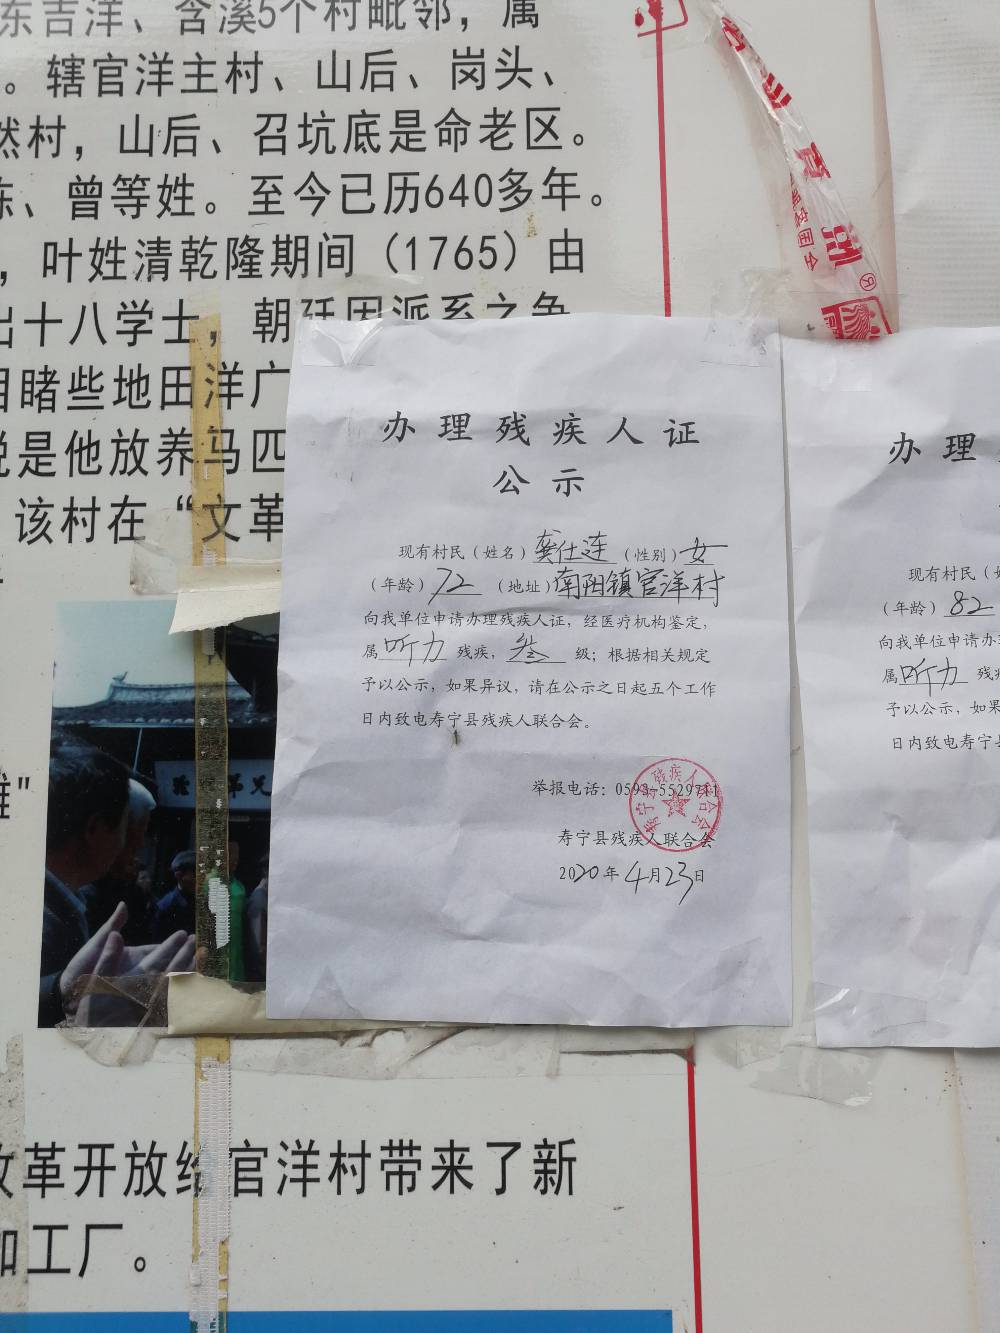 东吉洋、含溪5个村毗邻，属
。辖官洋主村、山后、岗头、
然村，山后、召坑底是命老区。
陈、曾等姓。至今已历640多年。
，叶姓清乾隆期间（1765）由
出十八学士，朝廷因派系之争
目睹些地田洋广
说是他放养马匹
该村在“文革
办理残疾人证
公示
现有村民（姓名）龚仕莲（性别）女
（年龄）72（地址）南阳镇官洋村
向我单位申请办理残疾人证，经医疗机构鉴定，
属听力残疾，叁级；根据相关规定
予以公示，如果异议，请在公示之日起五个工作
日内致电寿宁县残疾人联合会。
举报电话：0593-5529711
寿宁县残疾人联合会
2020年4月23日
寿宁县残疾人联合会
办理
现有村民（姓
（年龄）82
向我单位申请办理
属听力残疾
予以公示，如果
日内致电寿宁县
雄"
改革开放给官洋村带来了新
加工厂。